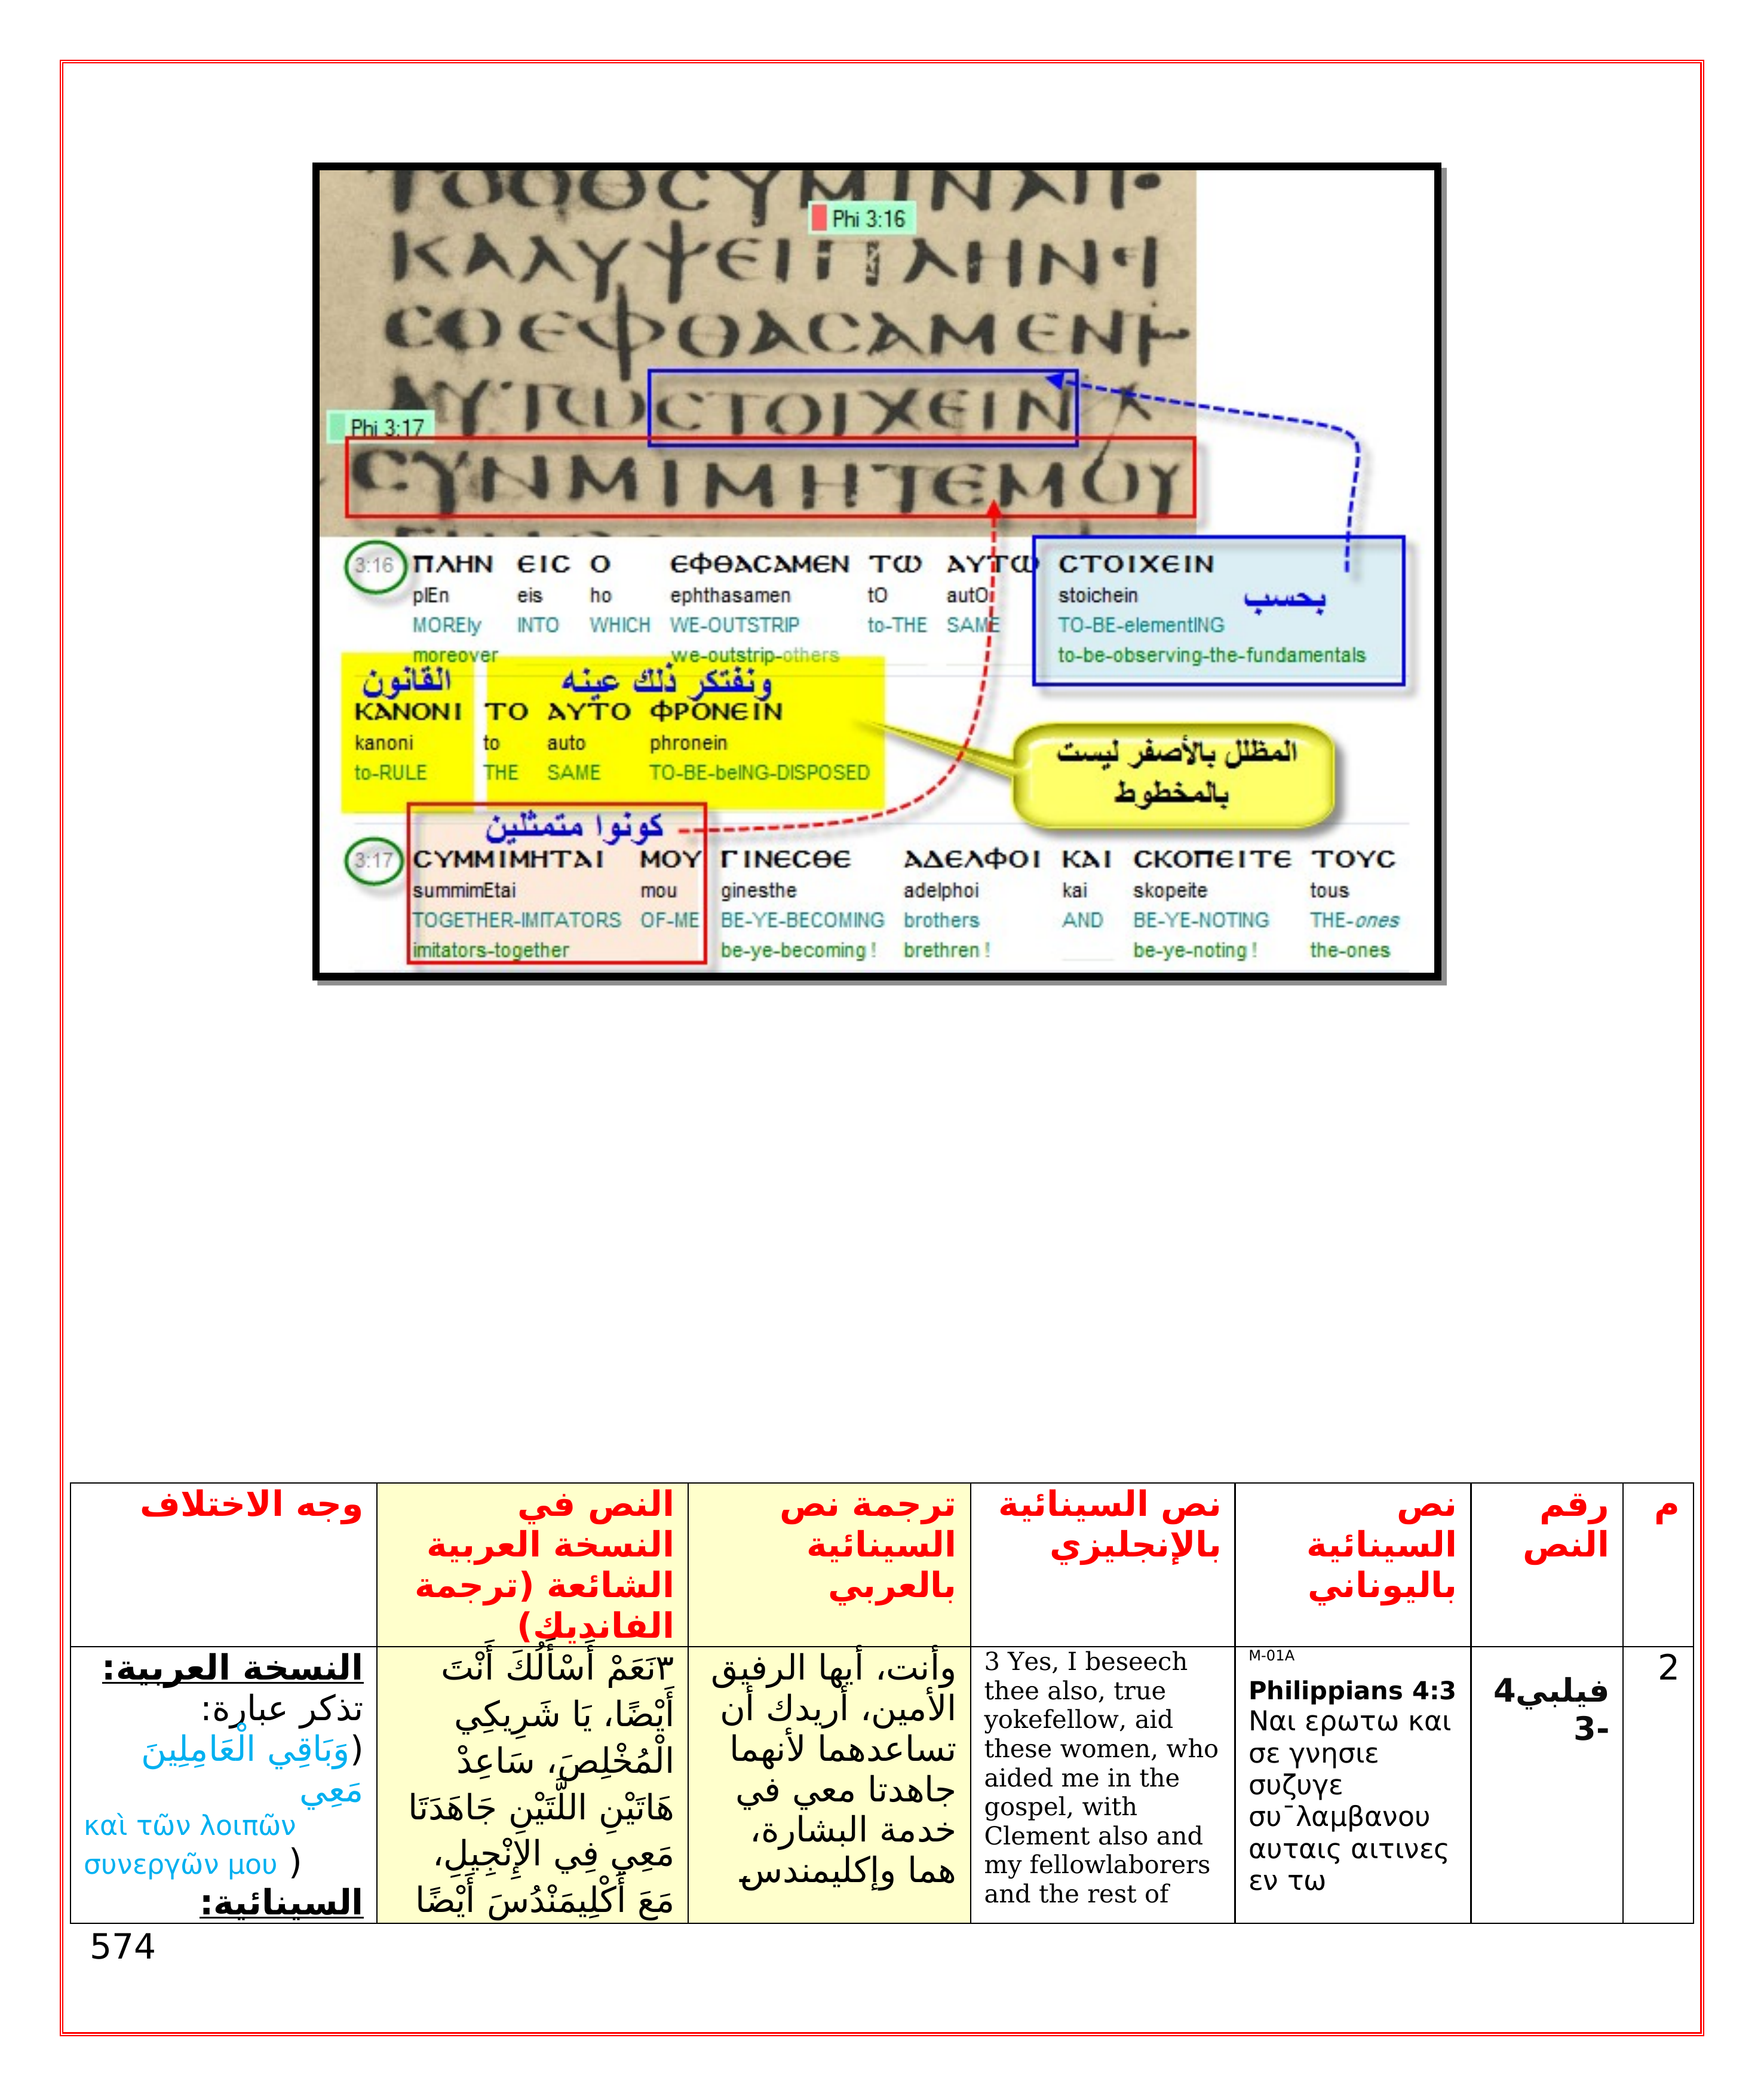 ΤΟΟΘΟCΥΜΙΝΑΠ
Phi 3:16
ΚΑΛΥΨΕΙΠΛΗΝΕΙ
CΟΕΦΘΑCΑΜΕΝ
ΑΥΤΩCΤΟΙΧΕΙΝ
Phi 3:17
CΥΝΜΙΜΗΤΕΜΟΥ
3:16 ΠΛΗΝ ΕΙC Ο ΕΦΘΑCΑΜΕΝ ΤΩ ΑΥΤΩ CΤΟΙΧΕΙΝ
plEn eis ho ephthasamen tO autO stoichein
بحسب
MOREly INTO WHICH WE-OUTSTRIP to-THE SAME TO-BE-elementING
moreover we-outstrip-others to-be-observing-the-fundamentals
القانون ونفتكر ذلك عينه
ΚΑΝΟΝΙ ΤΟ ΑΥΤΟ ΦΡΟΝΕΙΝ
kanoni to auto phronein
to-RULE THE SAME TO-BE-beING-DISPOSED
المظلل بالأصفر ليست
بالمخطوط
كونوا متمثلين
3:17 CΥΜΜΙΜΗΤΑΙ ΜΟΥ ΓΙΝΕCΘΕ ΑΔΕΛΦΟΙ ΚΑΙ CΚΟΠΕΙΤΕ ΤΟΥC
summimEtai mou ginesthe adelphoi kai skopeite tous
TOGETHER-IMITATORS OF-ME BE-YE-BECOMING brothers AND BE-YE-NOTING THE-ones
imitators-together be-ye-becoming ! brethren ! be-ye-noting ! the-ones
م
رقم
النص
نص
السينائية
باليوناني
نص السينائية
بالإنجليزي
ترجمة نص
السينائية
بالعربي
النص في
النسخة العربية
الشائعة (ترجمة
الفانديك)
وجه الاختلاف
2
فيلبي4
3-
M-01A
Philippians 4:3
Ναι ερωτω και
σε γνησιε
συζυγε
συ¯λαμβανου
αυταις αιτινες
εν τω
3 Yes, I beseech
thee also, true
yokefellow, aid
these women, who
aided me in the
gospel, with
Clement also and
my fellowlaborers
and the rest of
وأنت، أيها الرفيق
الأمين، أريدك أن
تساعدهما لأنهما
جاهدتا معي في
خدمة البشارة،
هما وإكليمندس
٣نَعَمْ أَسْأَلُكَ أَنْتَ
أَيْضًا، يَا شَرِيكِي
الْمُخْلِصَ، سَاعِدْ
هَاتَيْنِ اللَّتَيْنِ جَاهَدَتَا
مَعِي فِي الإِنْجِيلِ،
مَعَ أَكْلِيمَنْدُسَ أَيْضًا
النسخة العربية:
تذكر عبارة:
(وَبَاقِي الْعَامِلِينَ
مَعِي
καὶ τῶν λοιπῶν
συνεργῶν μου )
السينائية:
574